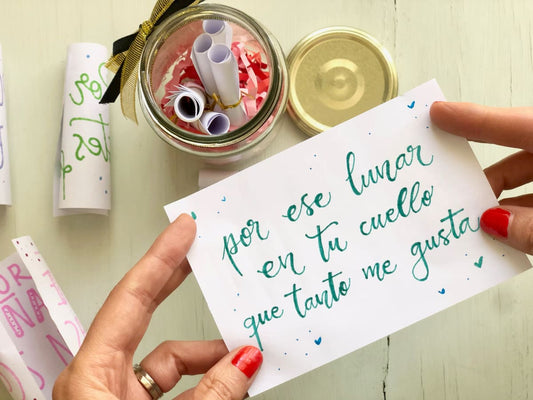 por ese lunar
en tu cuello
que tanto me gusta